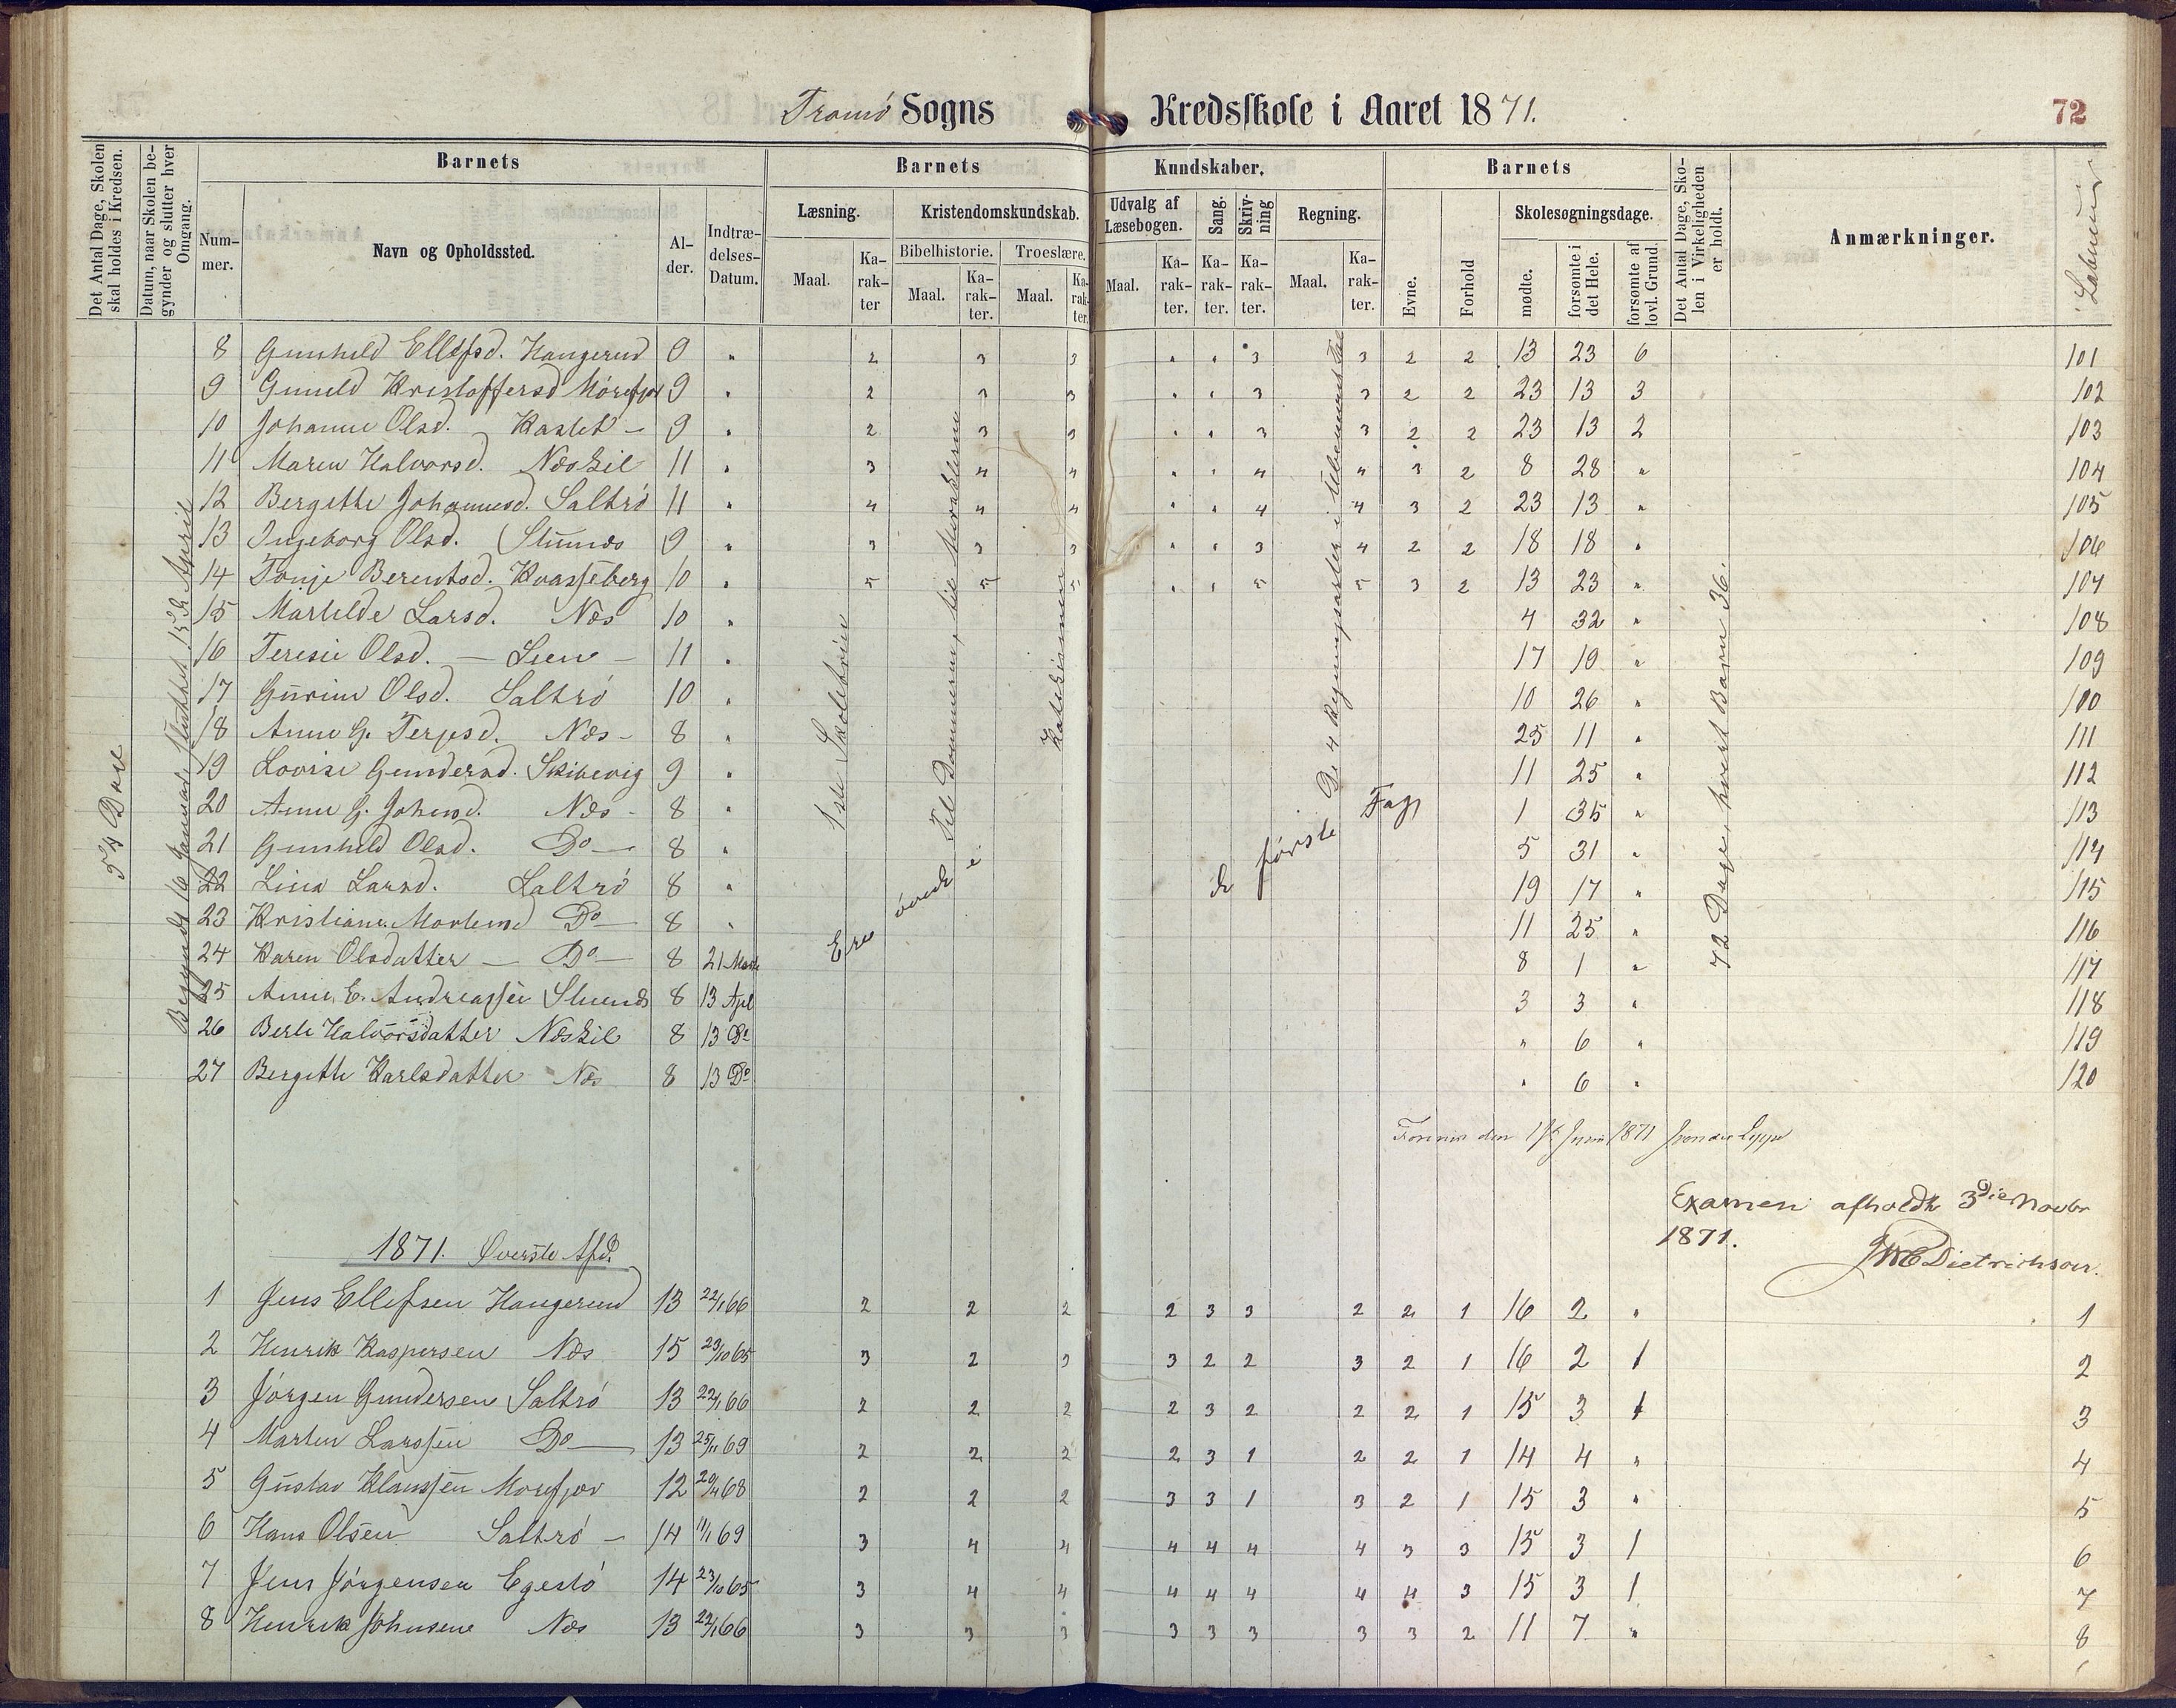 Tromø Sogns Kredsskole i Aaret 1871.
72
Det Antal Dage, Skolen skal holdes i Kredsen.
Datum, naar Skolen begynder og slutter hver Omgang.
Barnets
Nummer.
Navn og Opholdssted.
Alder.
Indtrædelses-Datum.
Barnets Kundskaber.
Læsning.
Maal.
Karakter
Kristendomskundskab.
Bibelhistorie.
Maal.
Karakter.
Troeslære.
Maal.
Karakter.
Udvalg af Læsebogen.
Maal.
Karakter.
Sang.
Karakter.
Skrivning
Karakter.
Regning.
Maal.
Karakter.
Barnets
Evne.
Forhold
Skolesøgningsdage.
mødte.
forsømte i det Hele.
forsømte af lovl. Grund.
Det Antal Dage, Skolen i Virkeligheden er holdt.
Anmærkninger.
Løbenumr
54 Dage
Begyndt 16 Januar, sluttet 15de April
1ste Skoletrin
Ere øvede i
Katekismen
De 4 Regningsarter i ubenævnte Tal
de første Fag,
72 Dage, hvert Barn 36.
8 Gunhild Ellefsd. Haugerud 9 " 2 3 3 " " 3 3 2 2 13 23 6 101
9 Gunild Kristoffersd Mørefjær 9 " 2 3 3 " " 3 3 2 2 23 13 3 102
10 Johanne Olsd. Kastet - 9 " 2 3 3 " " 3 3 2 2 23 13 2 103
11 Maren Halvorsd. Næskil 11 " 3 4 4 " " 4 4 3 2 8 28 " 104
12 Bergithe Johannesd. Saltrø 11 " 4 4 4 " " 4 4 3 2 23 13 " 105
13 Ingeborg Olsd. Stuenæs 9 " 3 3 3 " " 3 4 2 2 18 18 " 106
14 Tonje Berentsd. Kvasseberg 10 " 5 5 5 " " 5 5 3 2 13 23 " 107
15 Mathilde Larsd. Næs 10 " 4 32 " 108
16 Teresie Olsd. - Lien - 11 " 17 19 " 109
17 Gurine Olsd. Saltrø 10 " 10 26 " 100
18 Anne G. Terjesd. Næs - 8 " 25 11 " 111
19 Lovise Gundersd. Skibevig 9 " 11 25 " 112
20 Anne G. Johnsd. Næs - 8 " 1 35 " 113
21 Gunhild Olsd. Do - 8 " 5 31 " 114
22 Lina Larsd. Saltrø 8 " 19 17 " 115
23 Kristiane Mortensd Do - 8 " 11 25 " 116
24 Karen Olsdatter - Do - 8 21 Marts 8 1 " 117
25 Anne E. Andreassen Stuenæs 8 13 Apl 3 3 " 118
26 Berte Halvorsdatter Næskil 8 13 Do " 6 " 119
27 Bergithe Karlsdatter Næs 8 13 Do " 6 " 120
den 1871
Examen afholdt 3die Novbr
1871.
Dietrichson.
1871. Øverste Afd.
1 Jens Ellefsen Haugerud 13 22/1 66 2 2 2 2 3 3 2 2 1 16 2 " 1
2 Henrik Kaspersen Næs 15 23/10 65 3 2 3 3 2 2 3 2 1 16 2 1 2
3 Jørgen Gundersen Saltrø 13 22/1 66 2 2 2 2 3 2 2 2 1 15 3 1 3
4 Marten Larssen Do - 13 25/11 69 2 2 2 2 3 1 2 2 1 14 4 " 4
5 Gustav Klaussen Morefjær 12 20/4 68 2 2 2 3 3 1 3 2 1 15 3 " 5
6 Hans Olsen Saltrø - 14 11/1 69 3 4 4 4 4 4 4 3 3 15 3 1 6
7 Jens Jørgensen Egestø 14 23/10 65 3 4 4 4 4 4 4 4 3 15 3 1 7
8 Henrik Johnsen Næs 13 22/1 66 3 3 3 3 3 3 3 3 2 11 7 " 8